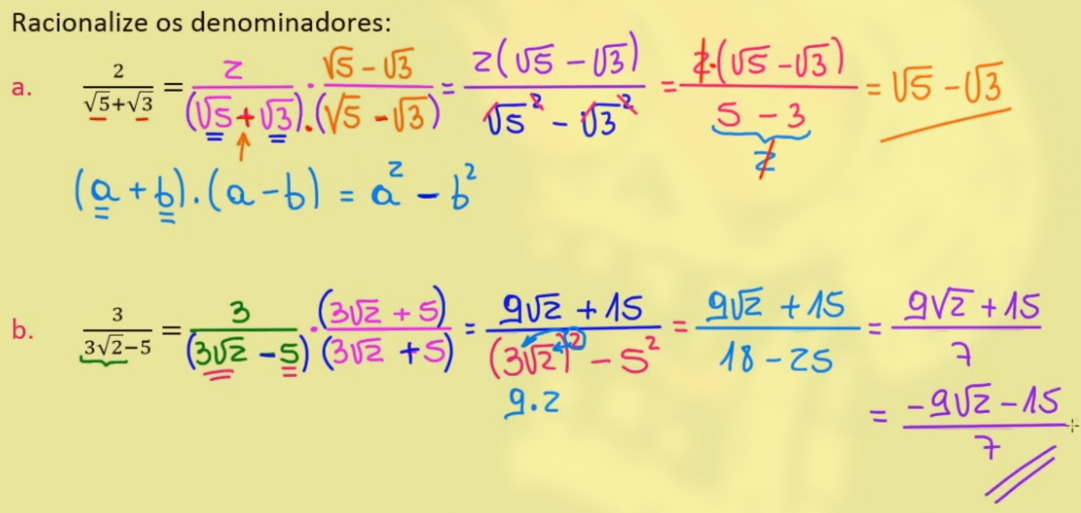 Racionalize os denominadores:
a. 2/(√5+√3) = 2/(√5+√3) · (√5-√3)/(√5-√3) = 2(√5-√3)/(√5²-√3²) = 2·(√5-√3)/(5-3) = √5-√3
2
(a+b).(a-b) = a²-b²
b. 3/(3√2-5) = 3/(3√2-5) · (3√2+5)/(3√2+5) = (9√2+15)/((3√2)²-5²) = (9√2+15)/(18-25) = (9√2+15)/7
9.2
= (-9√2-15)/7